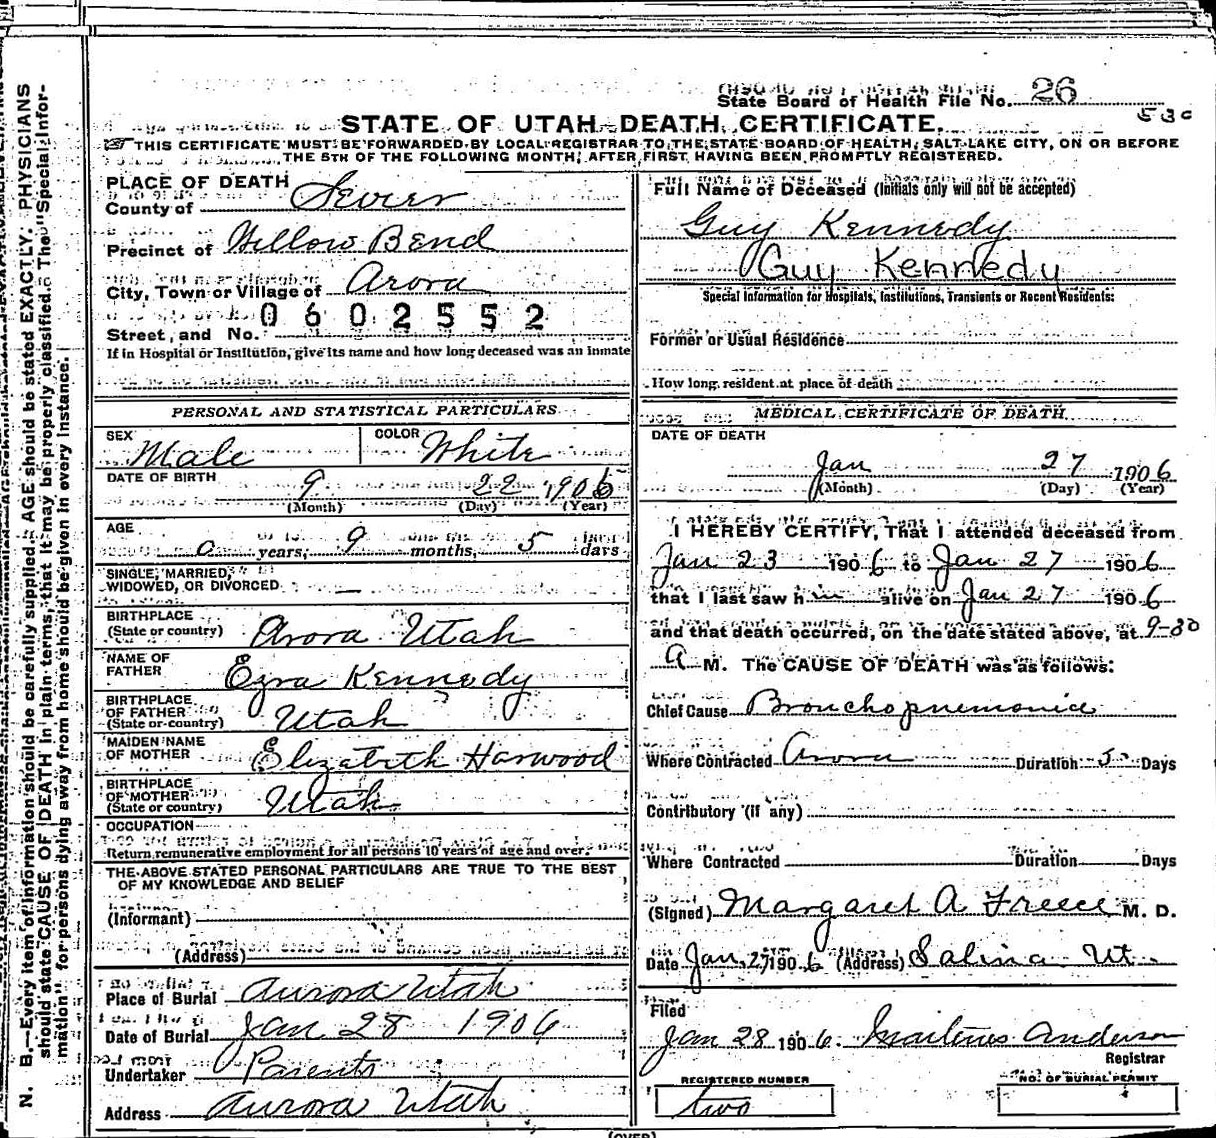 State Board of Health File No. 26
530
STATE OF UTAH-DEATH CERTIFICATE.
THIS CERTIFICATE MUST BE FORWARDED BY LOCAL REGISTRAR TO THE STATE BOARD OF HEALTH, SALT LAKE CITY, ON OR BEFORE
THE 5TH OF THE FOLLOWING MONTH, AFTER FIRST HAVING BEEN PROMPTLY REGISTERED.
PLACE OF DEATH
County of Sevier
Precinct of Willow Bend
City, Town or Village of Arora
0602552
Street, and No.
If in Hospital or Institution, give its name and how long deceased was an inmate
PERSONAL AND STATISTICAL PARTICULARS
SEX Male COLOR White
DATE OF BIRTH 9 22 1906
(Month) (Day) (Year)
AGE
0 years, 9 months, 5 days
SINGLE, MARRIED,
WIDOWED, OR DIVORCED —
BIRTHPLACE
(State or country) Arora Utah
NAME OF
FATHER Ezra Kennedy
BIRTHPLACE
OF FATHER
(State or country) Utah
MAIDEN NAME
OF MOTHER Elizabeth Harwood
BIRTHPLACE
OF MOTHER
(State or country) Utah
OCCUPATION
Return remunerative employment for all persons 10 years of age and over.
THE ABOVE STATED PERSONAL PARTICULARS ARE TRUE TO THE BEST
OF MY KNOWLEDGE AND BELIEF
(Informant)
(Address)
Place of Burial Aurora Utah
Date of Burial Jan 28 1906
Undertaker Parents
Address Aurora Utah
Full Name of Deceased (Initials only will not be accepted)
Guy Kennedy
Guy Kennedy
Special Information for Hospitals, Institutions, Transients or Recent Residents:
Former or Usual Residence
How long resident at place of death
MEDICAL CERTIFICATE OF DEATH
DATE OF DEATH
Jan 27 1906
(Month) (Day) (Year)
I HEREBY CERTIFY, That I attended deceased from
Jan 23 1906 to Jan 27 1906
that I last saw him alive on Jan 27 1906
and that death occurred, on the date stated above, at 9-30
A M. The CAUSE OF DEATH was as follows:
Chief Cause Bronchopnemonia
Where Contracted Arora Duration 5 Days
Contributory (if any)
Where Contracted Duration Days
(Signed) Margaret A Freece M. D.
Date Jan 27 1906 (Address) Salina Ut.
Filed
Jan 28 1906. Anderson
Registrar
REGISTERED NUMBER
two
NO. OF BURIAL PERMIT
(OVER)
N. B.—Every item of information should be carefully supplied. AGE should be stated EXACTLY. PHYSICIANS
should state CAUSE OF DEATH in plain terms, that it may be properly classified. The "Special Infor-
mation" for persons dying away from home should be given in every instance.